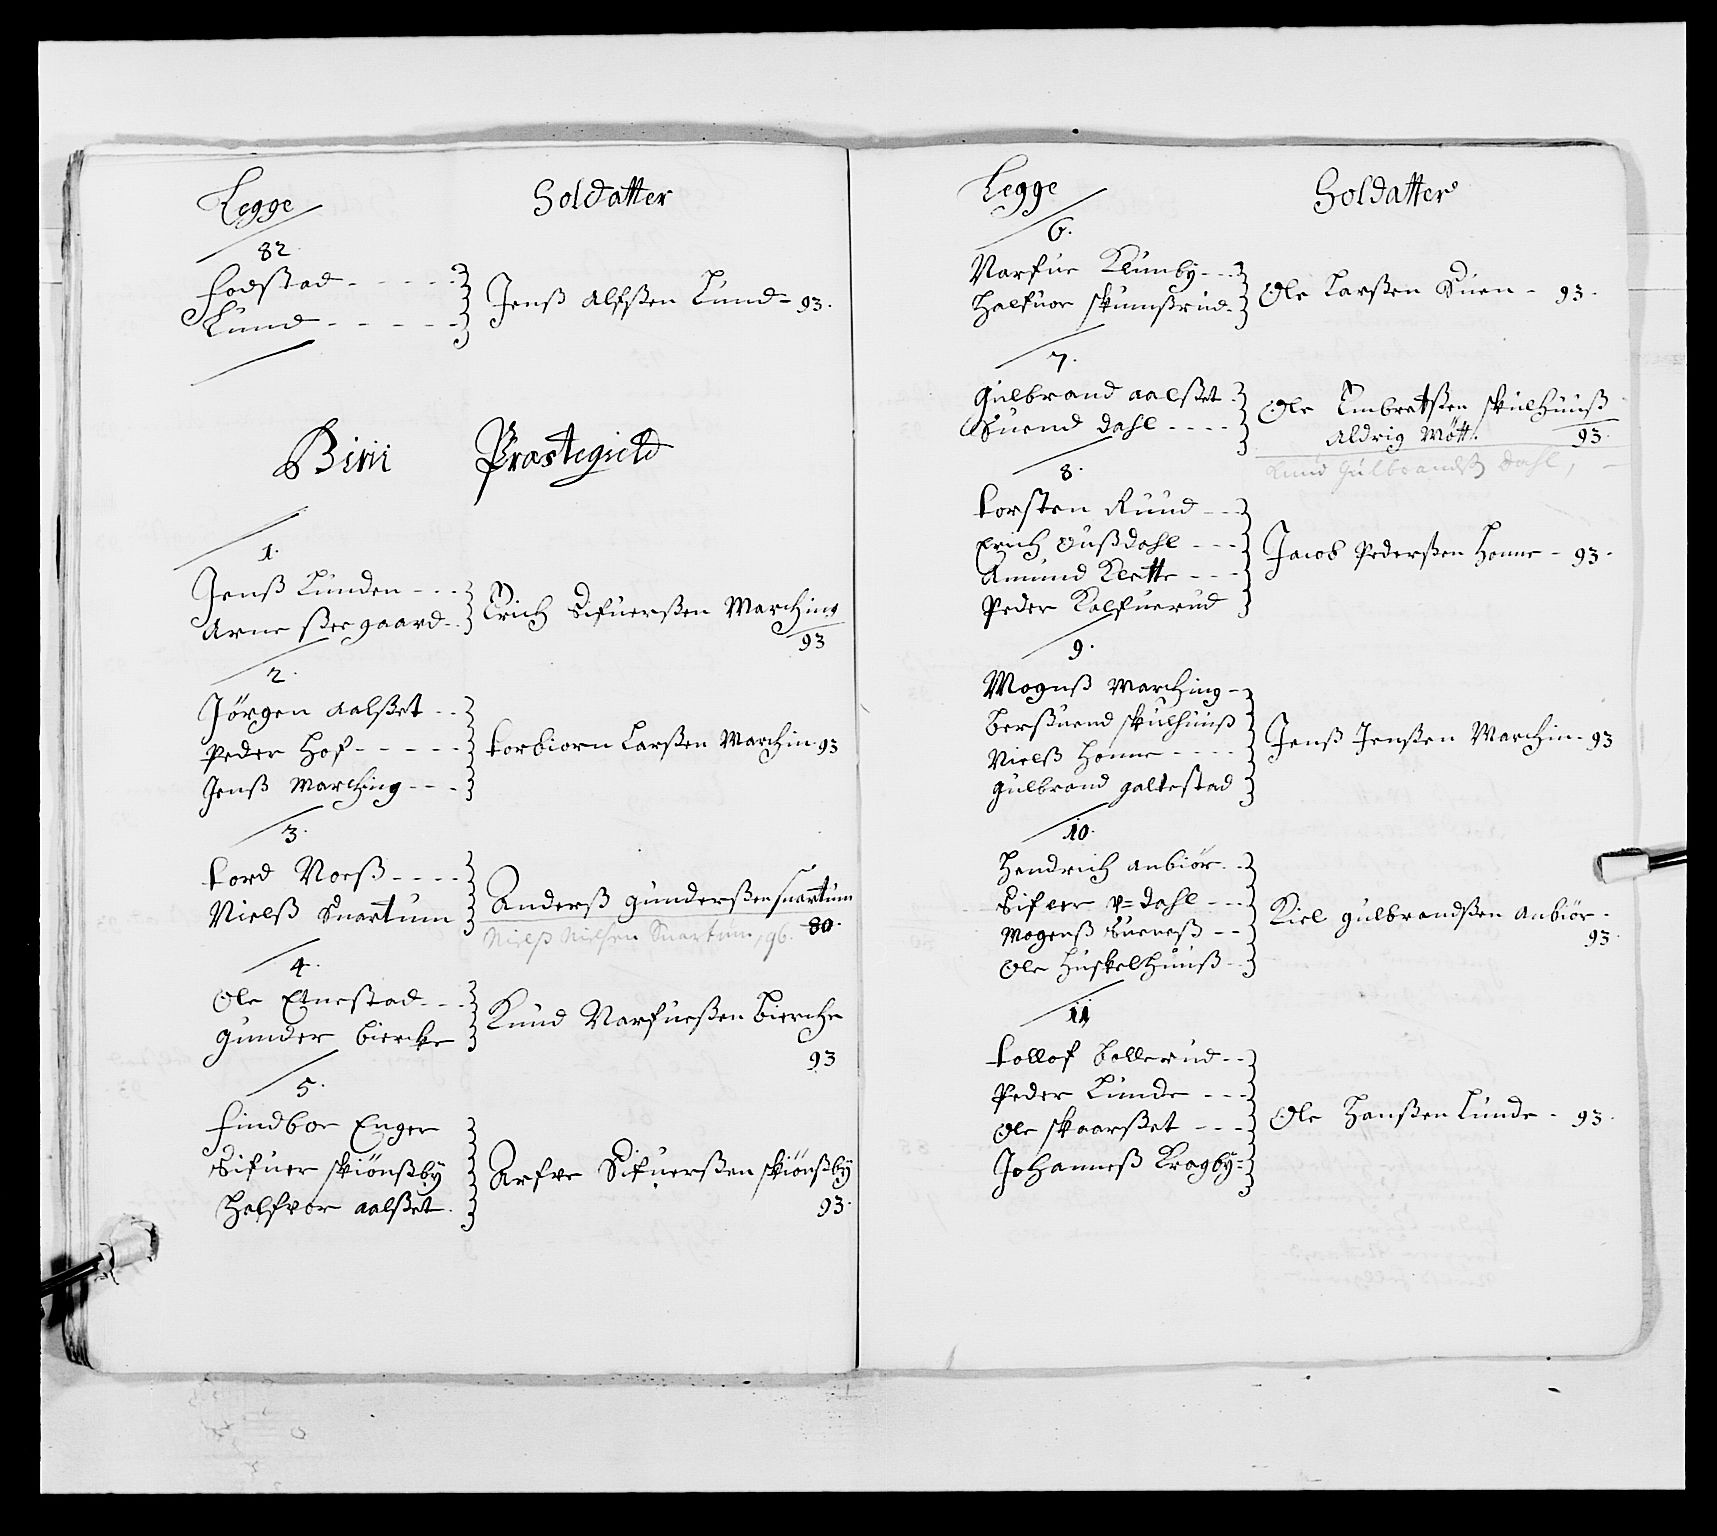 Legge
Soldatter
82
Fodstad
Lund
Jenß Alfßen Lund 93.
Biri Præstegield
1.
Jenß Lunden
Arne ßeegaard
Erich Sifuerßen Marching
93
2.
Jörgen Aalßet
Peder Hof
Jenß Marching
Torbiorn Larßen Marchin 93
3.
Tord Noeß
Nielß Snartum
Anderß Gunderßen Snartum
80.
Nielß Nielsen Snartum, 96.
4.
Ole Etnestad
Gunder Biercke
Knud Narfueßen Bierche
93
5.
Findbor Enger
Sifuer Skiönßby
Halfvor Aalßet
Arfve Sifuerßen Skiönßby
93.
Legge
Soldatter
6.
Narfue Klunby
Halfuor Skumßrud
Ole Larßen Suen 93.
7.
Gulbrand Aalßet
Suend Dahl
Ole Embretßen Skulhuuß
Aldrig Mött. 93.
Knud Gulbrandß Dahl,
8.
Torsten Ruud
Erich Oußdahl
Amund Klette
Peder Kalfuerud
Jacob Pederßen Honne 93.
9.
Mognß Marching
Berßuend Skulhuuß
Nielß Honne
Gulbrand Galtestad
Jenß Jenßen Marchin 93
10.
Hendrich Anbiör
Sifver P= Dahl
Mogenß Sveneß
Ole Huskelhuuß
Kiel Gulbrandßen Anbiör
93.
11
Tollof Bollerud
Peder Lunde
Ole Skaarßet
Johanneß Kragby
Ole Hanßen Lunde 93.